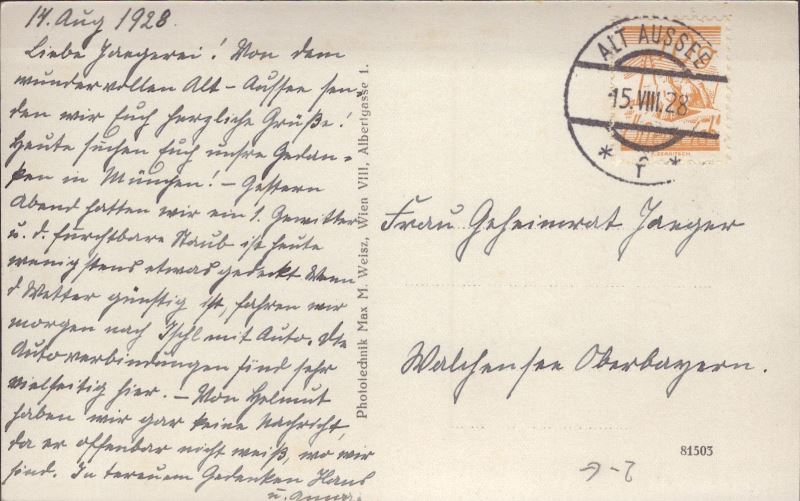 14. Aug 1928.
Liebe Jaegerei! Von dem
wundervollen Alt-Aussee sen=
den wir Euch herzliche Grüße!
Heute suchen Euch unsre Gedan=
ken in München! - Gestern
Abend hatten wir ein 1. Gewitter
u. d. furchtbare Staub ist heute
wenigstens etwas gedeckt. Wenn
d Wetter günstig ist, fahren wir
morgen nach Ischl mit Auto. Die
Autoverbindungen sind sehr
vielseitig hier. - Von Helmut
haben wir gar keine Nachricht,
da er offenbar nicht weiß, wo wir
sind. In treuem Gedenken Hans
u. Anna.
Phototechnik Max M. Weisz, Wien VIII, Albertgasse 1.
ALT AUSSEE
15.VIII.28
* f *
Frau Geheimrat Jaeger
Walchensee Oberbayern.
81503